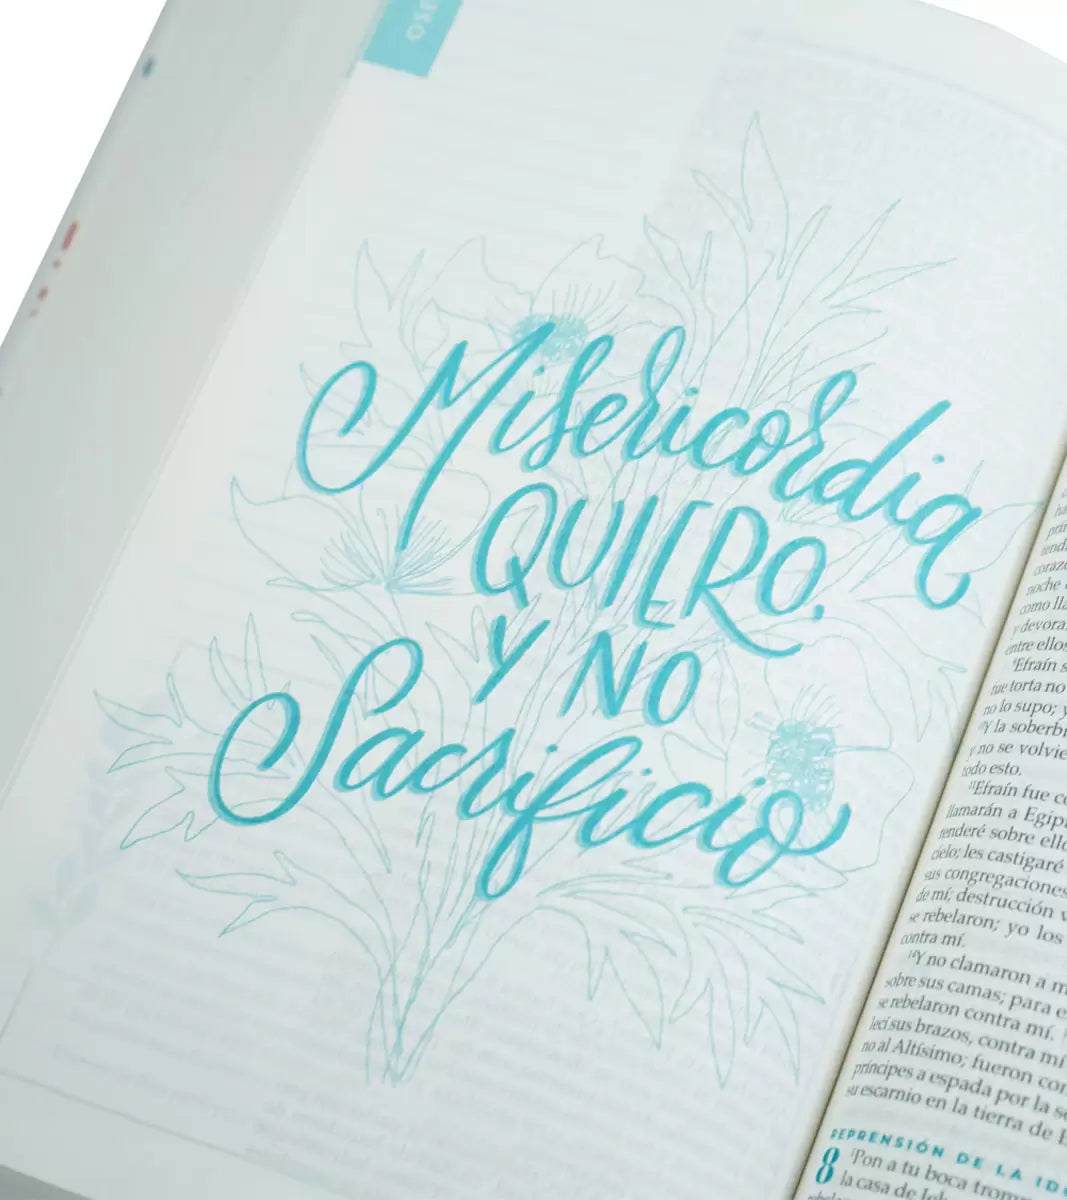 OSE
Misericordia
QUIERO,
Y NO
Sacrificio
entre ellos
Efraín
torta no
no lo supo; y
Y la soberbi
y no se volvie
todo esto.
11Efraín fue
llamarán a Egip
tenderé sobre ello
cielo; les castigaré
sus congregaciones
de mí; destrucción
se rebelaron; yo los
contra mí.
14Y no clamaron a m
sobre sus camas; para
se rebelaron contra mí.
lecí sus brazos, contra mí
no al Altísimo; fueron
príncipes a espada por la
su escarnio en la tierra de
REPRENSIÓN DE LA ID
8 1Pon a tu boca trom
la casa de